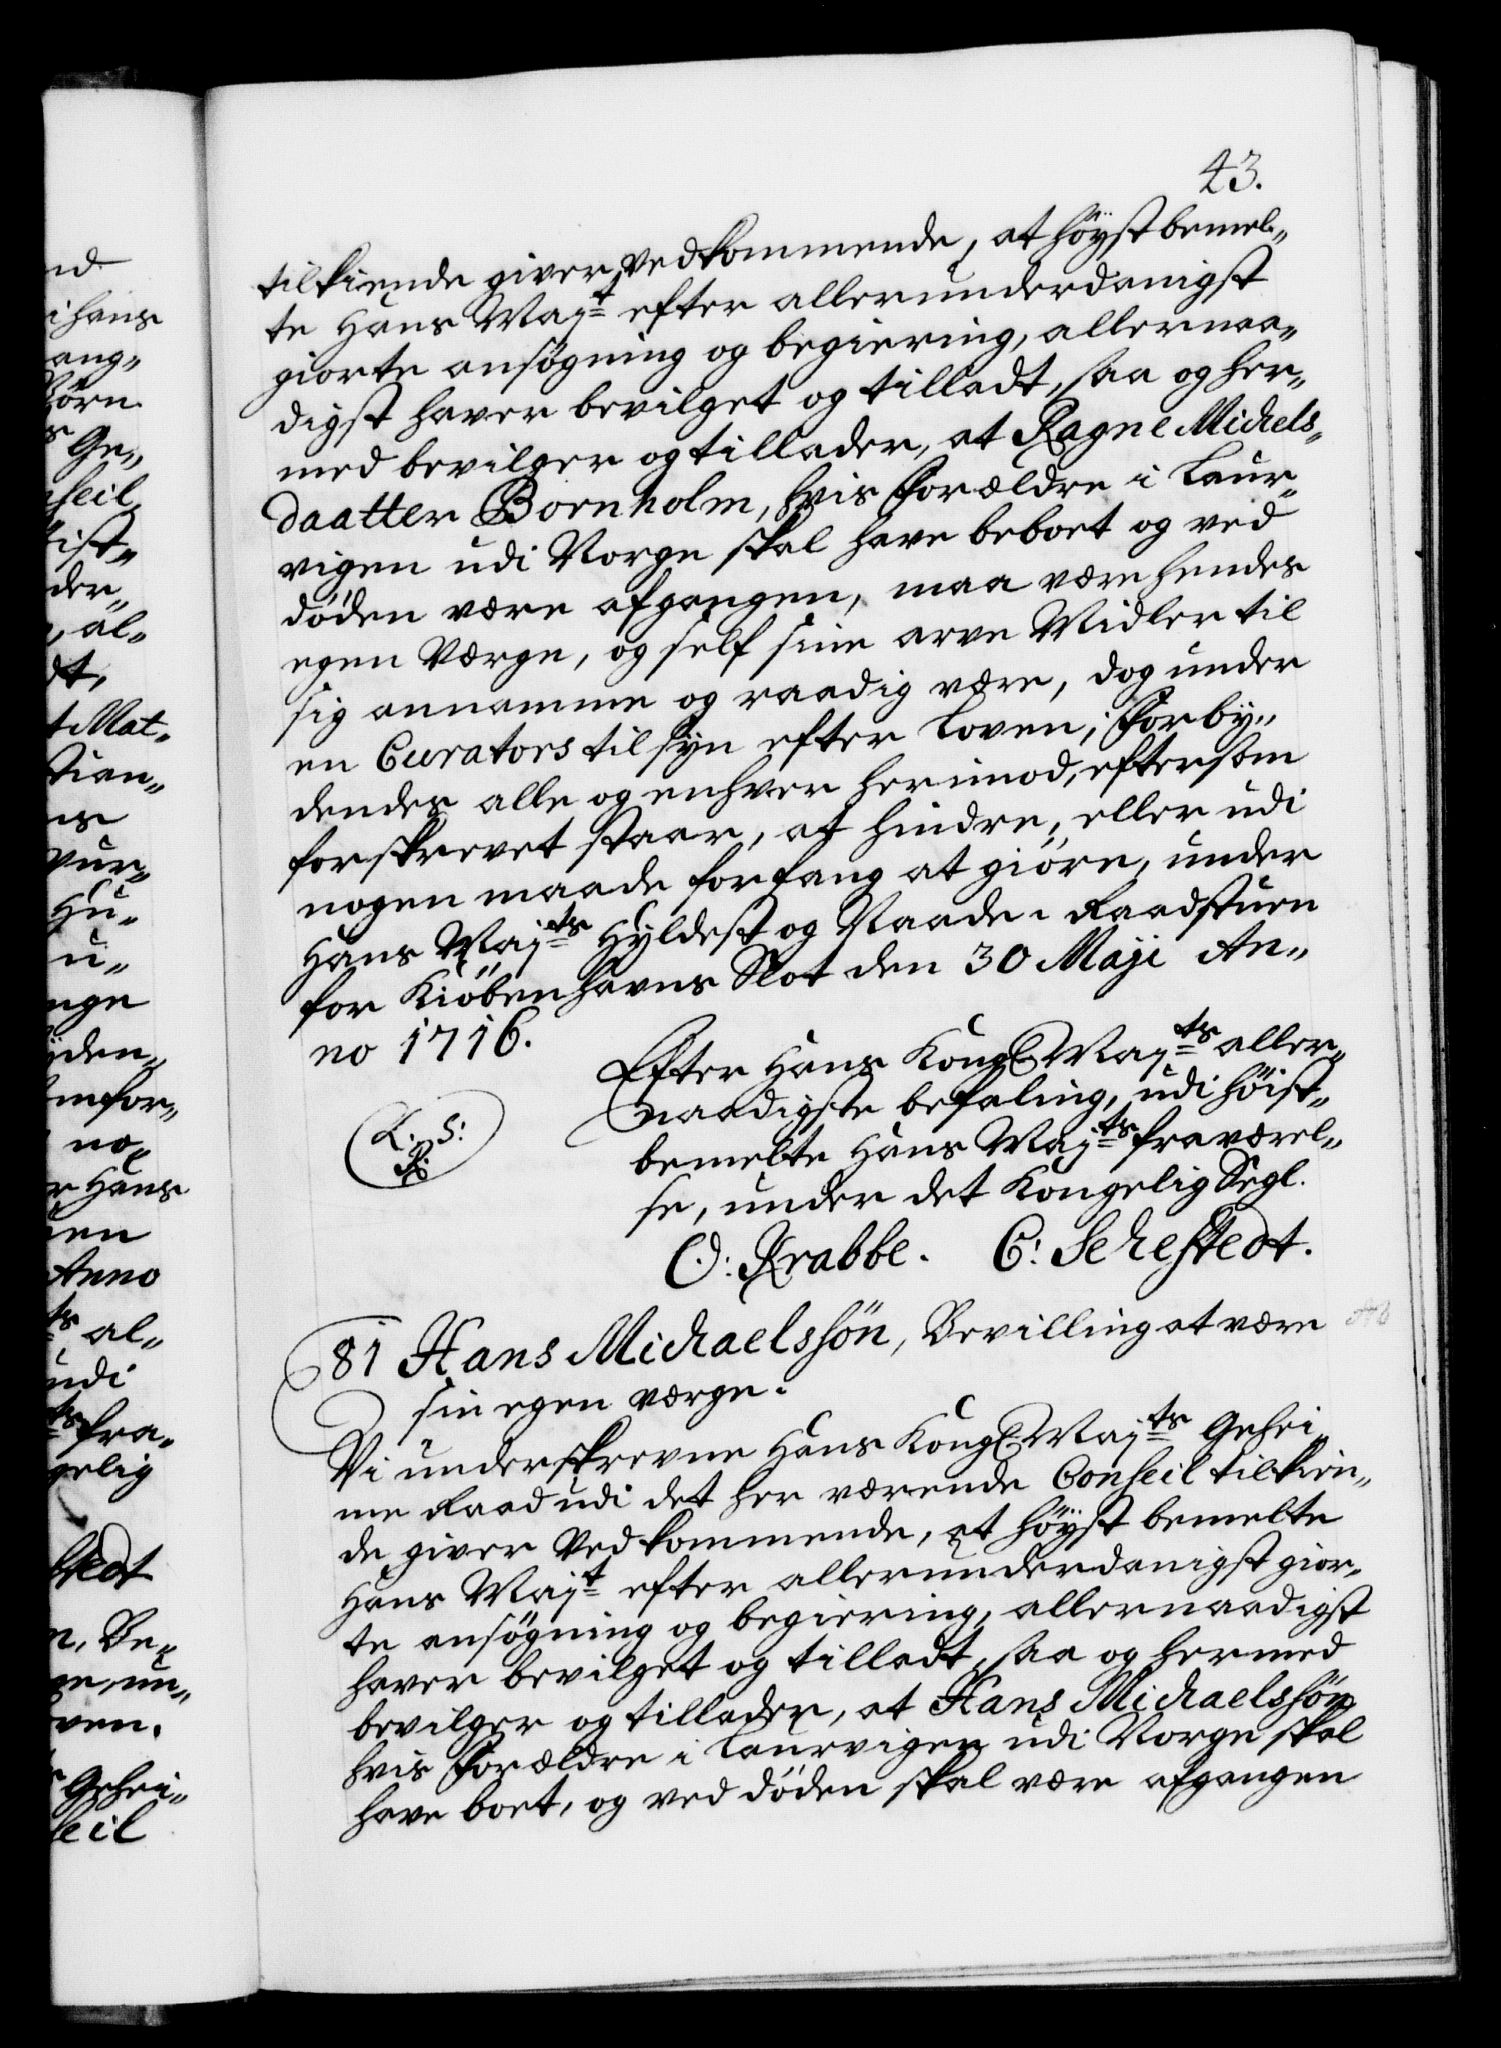 43.
tilkiende giver Vedkommende, at höystbemel„
te Hans Majt efter allerunderdanigst
giorte ansögning og begiering, allernaa„
digst haver bevilget og tilladt, saa og her„
med bevilger og tillader, at Ragne Michels„
daatter Bornholm, hvis Forældre i Laur„
vigen udi Norge skal have beboet og ved
döden være afgangen, maa være hendes
egen Værge, og self sine arve Midler til
sig annamme og raadig være, dog under
en Curators tilsyn efter Loven; Forby„
dendes alle og enhver herimod, eftersom
forskrevet staar, at hindre, eller udi
nogen maade forfang at giöre, under
Hans Majts Hyldest og Naade. Raadstuen
for Kiöbenhavns Slot den 30 Maji An„
no 1716.
Efter Hans Kongl Majts aller„
naadigste befaling, udi höist„
bemelte Hans Majts fraværel„
se, under det Kongelig Segl.
L. S:
R:
O: Krabbe. C: Sehestedt.
81 Hans Michaelssön, Bevilling at være
sin egen værge.
Vi underskrevne Hans Kongl Majts Gehei„
me Raad udi det her værende Conseil tilkien„
de giver Vedkommende, at höyst bemelte
Hans Majt efter allerunderdanigst gior„
te ansögning og begiering, allernaadigst
haver bevilget og tilladt, saa og hermed
bevilger og tillader, at Hans Michaelssön
hvis Forældre i Laurvigen udi Norge skal
have boet, og ved döden skal være afgangen